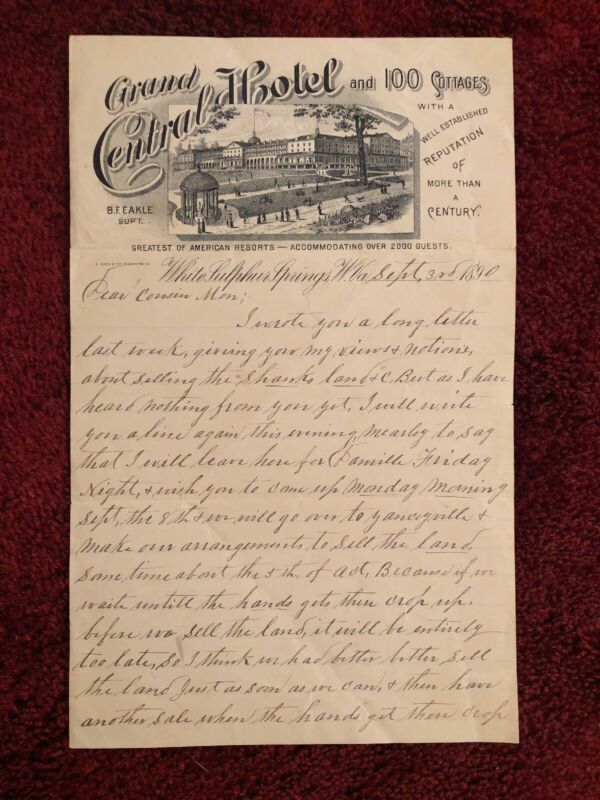 Grand Central Hotel and 100 Cottages
WITH A
WELL ESTABLISHED
REPUTATION
OF
MORE THAN
A
CENTURY.
B.F. EAKLE
SUPT.
GREATEST OF AMERICAN RESORTS — ACCOMMODATING OVER 2000 GUESTS.
White Sulphur Springs, W. Va. Sept, 3rd 1890
Dear Cousin Mon;
I wrote you a long letter
last week, giving you my views & notions,
about selling the Shanks land &c. But as I have
heard nothing from you yet, I will write
you a line again this evening, mearley to say
that I will leave here for Danville Friday
Night, & wish you to come up Monday morning
Sept, the 8th & we will go over to yanceyville &
make our arrangements to sell the land,
some time about the 5th, of Oct, Because if we
waite untill the hands gets then crop up.
before we sell the land, it will be entirely
too late, So I think we had better better sell
the land Just as soon as we can, & then have
another sale when the hands get then crop